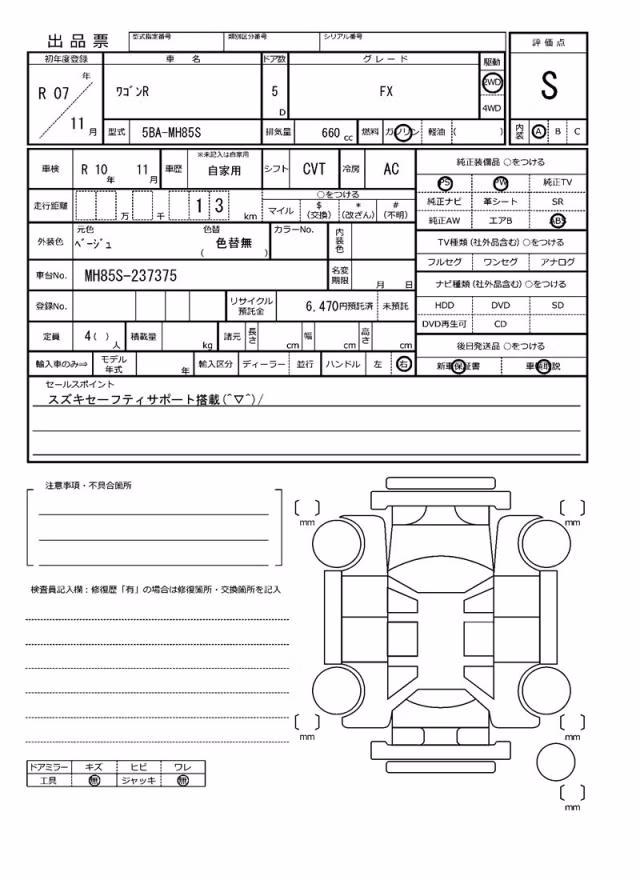 出品票 型式指定番号 類別区分番号 シリアル番号
評価点
初年度登録 車名 ドア数 グレード 駆動
R 07 年 11 月 ワゴンR 5 D FX 2WD 4WD S
型式 5BA-MH85S 排気量 660 cc 燃料 ガソリン 軽油 ( ) 内装 A B C
車検 R 10 年 11 月 車歴 ※未記入は自家用 自家用 シフト CVT 冷房 AC
走行距離 万 千 1 3 km ○をつける マイル $ (交換) * (改ざん) # (不明)
外装色 元色 ベージュ 色替 色替無 ( ) カラーNo. 内装色
車台No. MH85S-237375 名変期限 月 日
登録No. リサイクル預託金 6,470円預託済 未預託
定員 4( ) 人 積載量 kg 諸元 長さ cm 幅 cm 高さ cm
輸入車のみ⇒ モデル年式 年 輸入区分 ディーラー 並行 ハンドル 左 右
純正装備品 ○をつける
PS PW 純正TV
純正ナビ 革シート SR
純正AW エアB ABS
TV種類 (社外品含む) ○をつける
フルセグ ワンセグ アナログ
ナビ種類 (社外品含む) ○をつける
HDD DVD SD
DVD再生可 CD
後日発送品 ○をつける
新車保証書 車輌取説
セールスポイント
スズキセーフティサポート搭載(^▽^)/
注意事項・不具合箇所
検査員記入欄:修復歴「有」の場合は修復箇所・交換箇所を記入
ドアミラー キズ ヒビ ワレ
工具 無 ジャッキ 無
mm
mm
mm
mm
mm